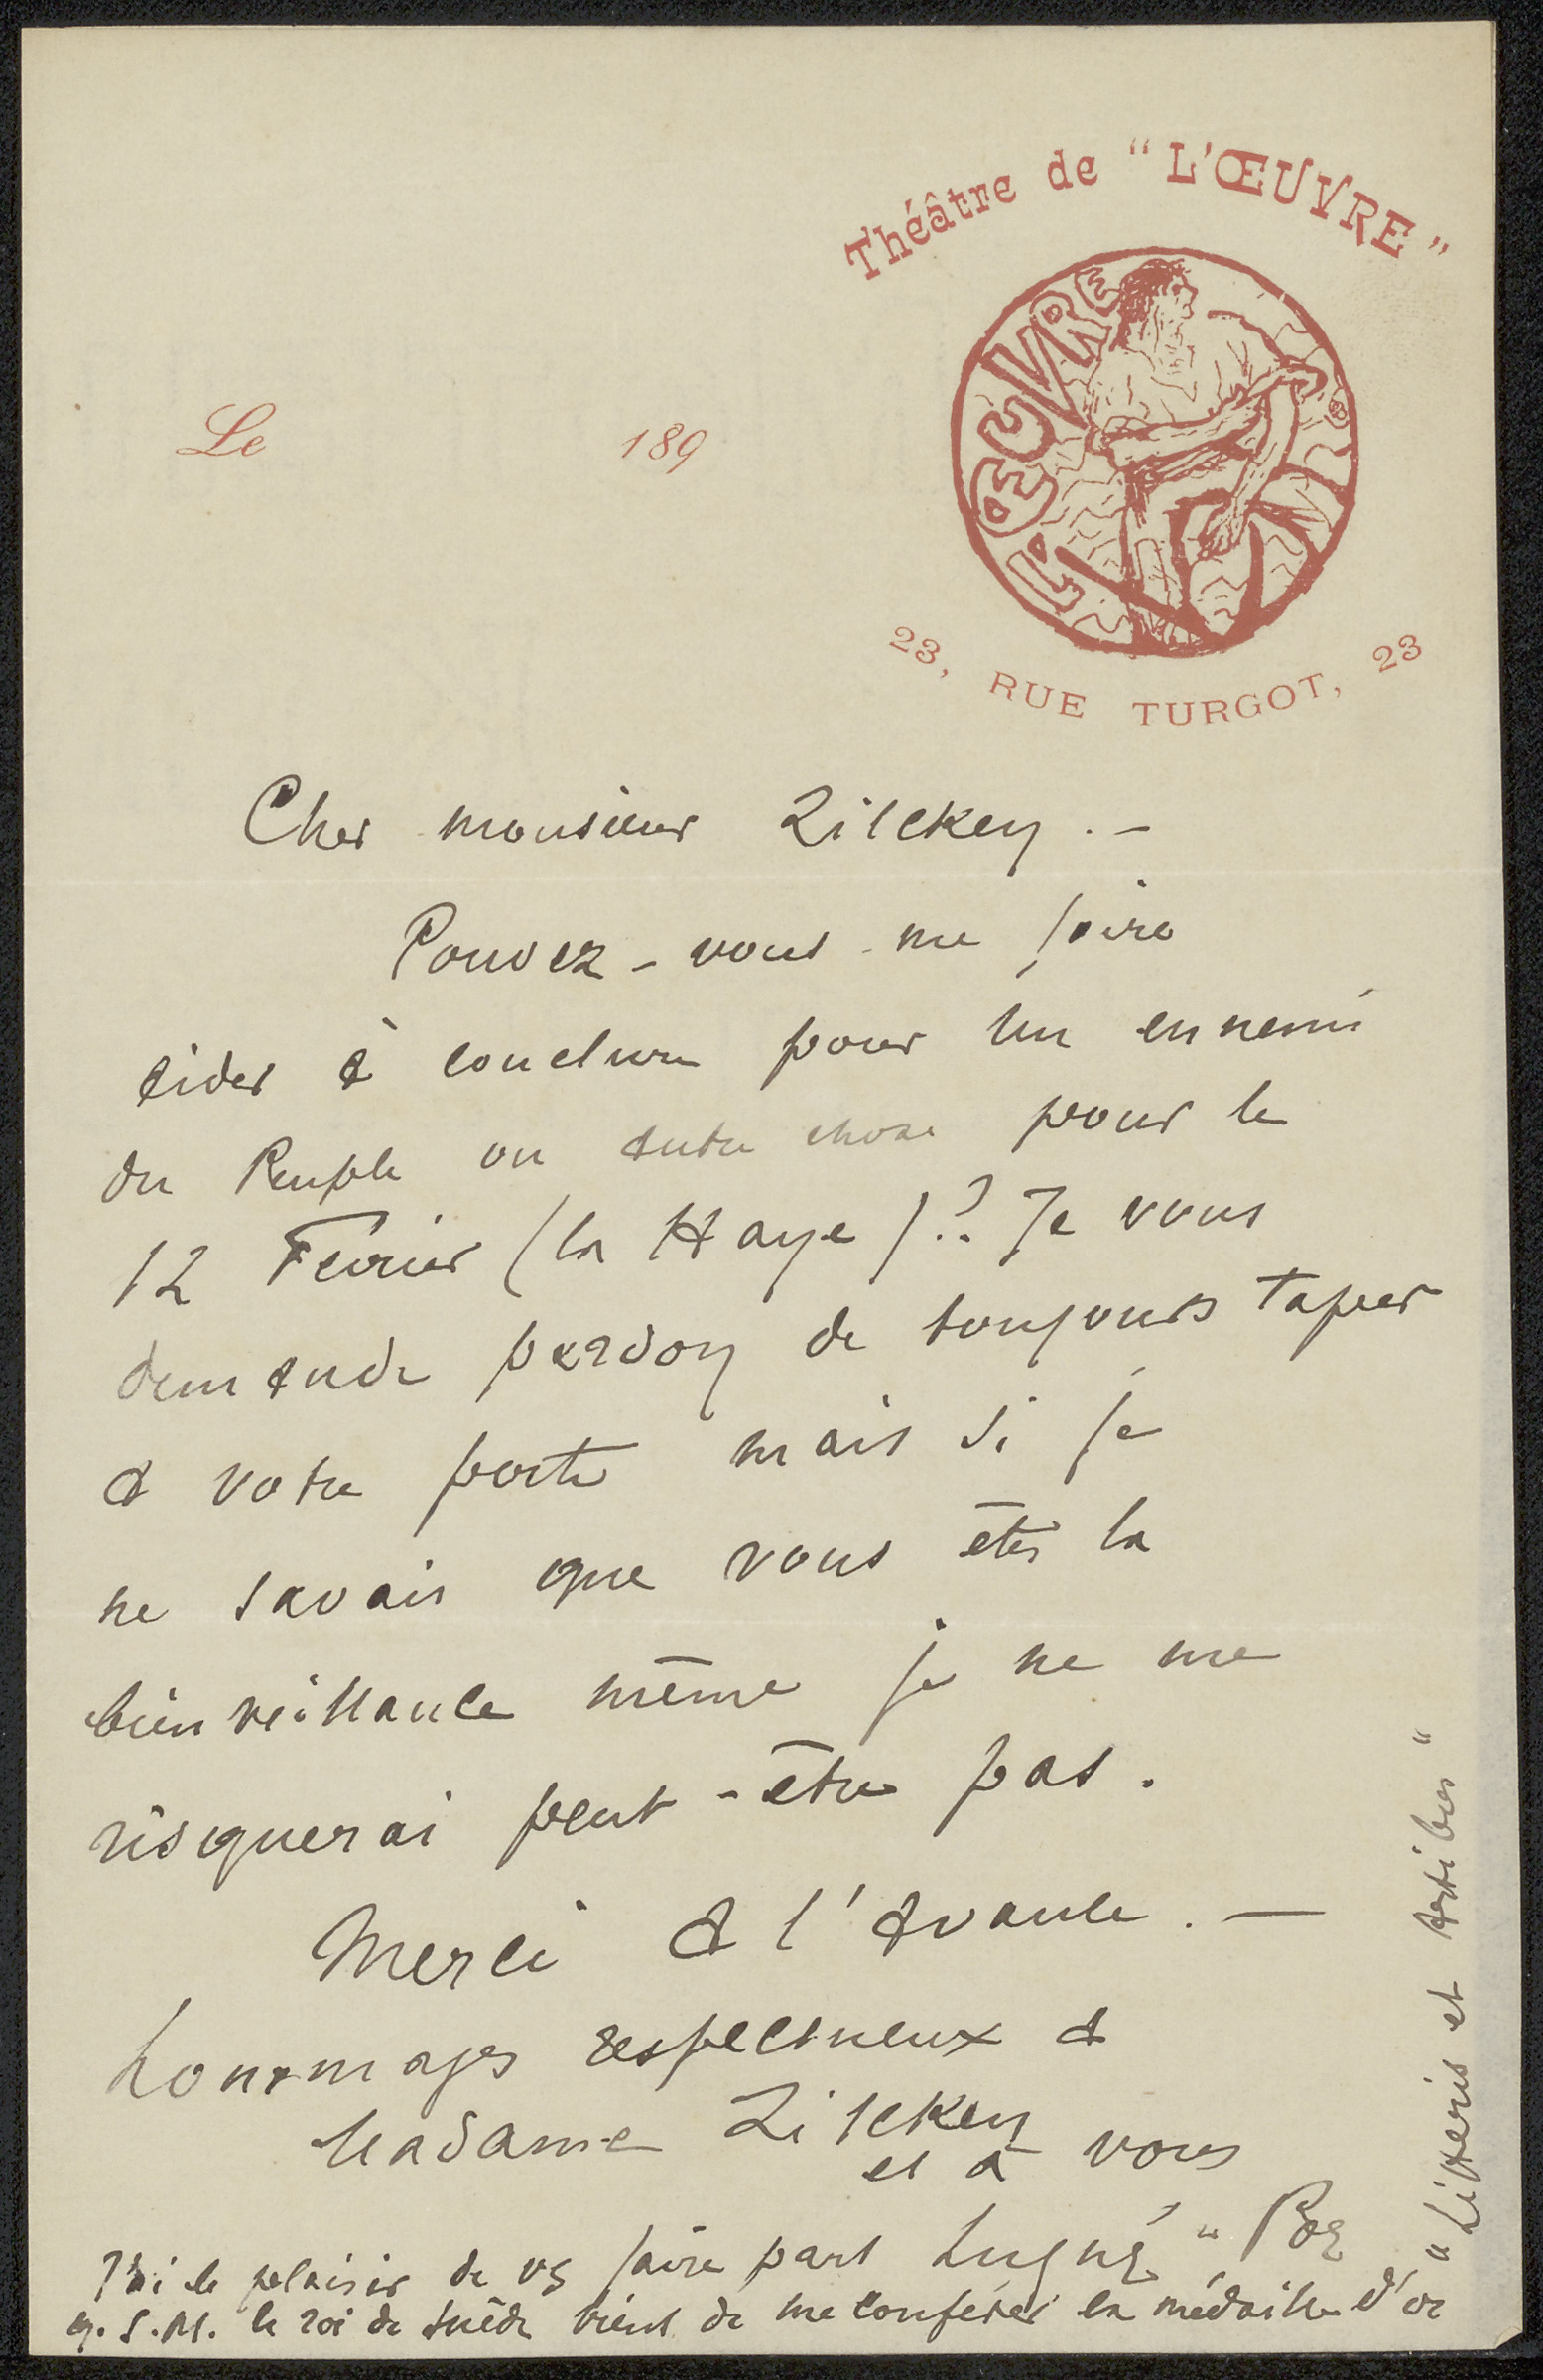 Théâtre de "L'ŒUVRE"
L'ŒUVRE
23, RUE TURGOT, 23
Le 189
Cher monsieur Zilcken . –
Pouvez-vous me faire
aider à conclure pour Un ennemi
du Peuple ou autre chose pour le
12 Février (la Haye)!? Je vous
demande pardon de toujours taper
à votre porte mais si je
ne savais que vous êtes la
bienveillance même je ne me
risquerai peut-être pas.
Merci à l'avance. —
hommages respectueux à
Madame Zilcken
et à vous
Lugné-Poe
J'ai le plaisir de vs faire part
q. S.M. le roi de Suède vient de me conférer la médaille d'or
"Litteris et Artibus"